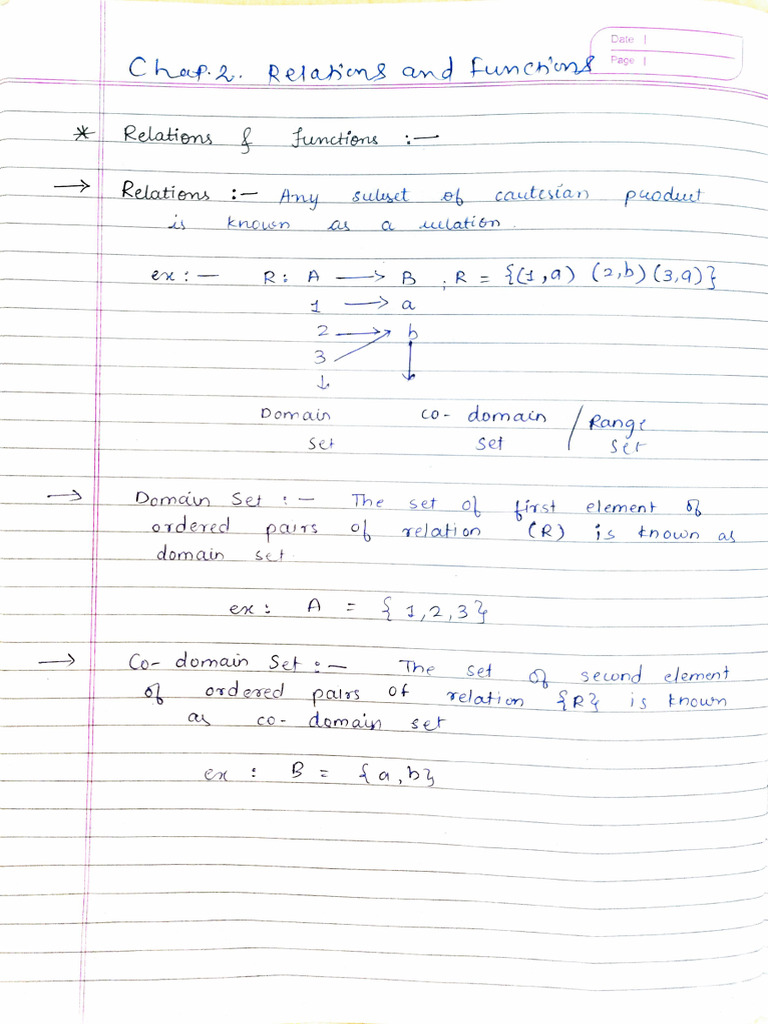 Date
Page
Chap.2. Relations and Functions
* Relations & functions :—
→ Relations :— Any subset of cartesian product
is known as a relation.
ex :— R : A → B ; R = {(1,a) (2,b) (3,a)}
1 → a
2 → b
3
↓ ↓
Domain co- domain / Range
set set set
→ Domain Set :— The set of first element of
ordered pairs of relation (R) is known as
domain set.
ex : A = {1,2,3}
→ Co- domain Set :— The set of second element
of ordered pairs of relation {R} is known
as co- domain set
ex : B = {a,b}